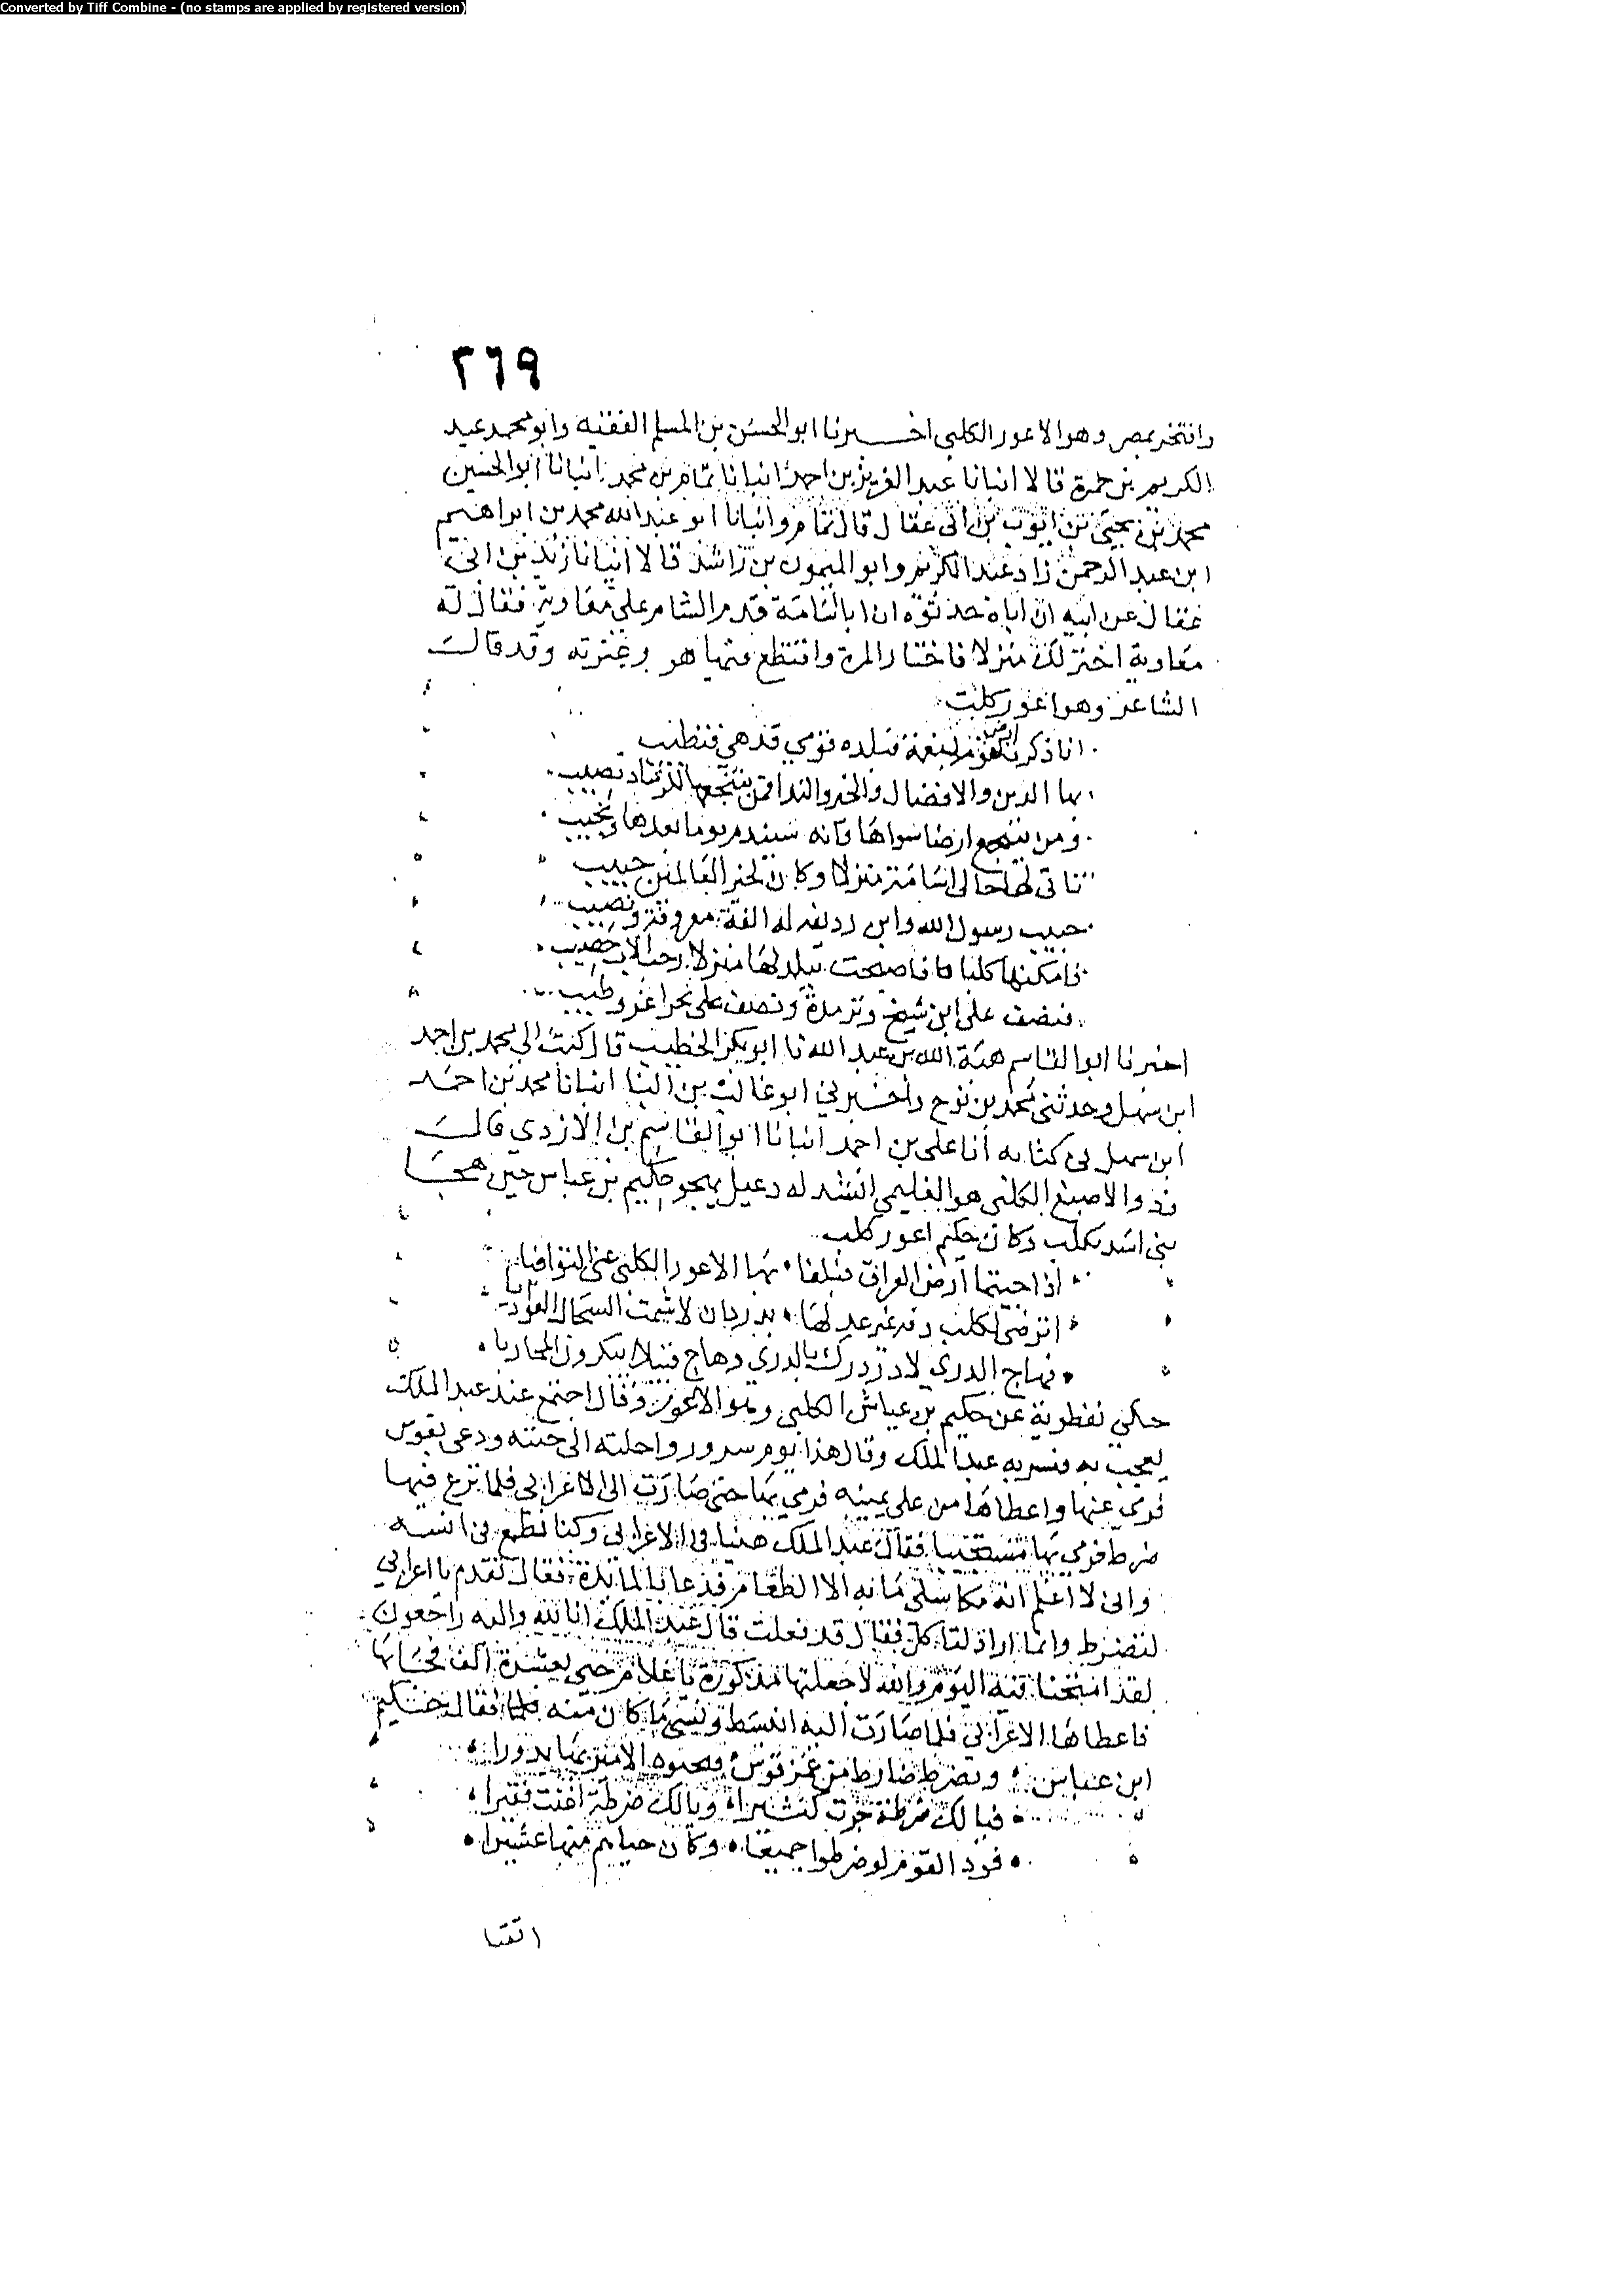 Converted by Tiff Combine - (no stamps are applied by registered version)
٢٦٩
وانتخر بمصر وهو الاعور الكلبي اخبرنا ابو الحسن بن المسلم الفقيه وابو محمد عبد
الكريم بن حمزة قالا انبانا عبد العزيز بن احمد انبانا تمام بن محمد انبانا ابو الحسين
محمد بن يحيى بن ايوب بن ابي عقال قال تمام وانبانا ابو عبد الله محمد بن ابراهيم
ابن عبد الرحمن زاد عبد الكريم وابو الميمون بن راشد قالا انبانا زيد بن ابي
عقال عن ابيه ان اباه حدثوه ان ابا اسامة قدم الشام على معاوية فقال له
معاوية اختر لك منزلا فاختار المزة واقتطع فيها هو وعترته وقد قال
الشاعر وهو اعور كلب
اذا ذكرت ارض لقوم بنعمة فبلدة قومي تزدهي فتطيب
بها الدين والافضال والخير والندا فمن ينتجعها للرشاد يصيب
ومن ينتجع ارضا سواها فانه سيندم يوما بعدها ويخيب
تاتي لها خالي اسامة منزلا وكان لخير العالمين حبيب
حبيب رسول الله وابن رديفه له الفة معروفة ونصيب
فاسكنها كلبا فاصبحت ببلدة لها منزل رحب الجناب خصيب
فنصف على بر فسيح ونزهة ونصف على بحر اغر وطيب
اخبرنا ابو القاسم هبة الله بن عبد الله نا ابو بكر الخطيب قال كتب الي محمد بن احمد
ابن سهل وحدثني محمد بن نوح واخبرني ابو غالب بن البنا انبانا محمد بن احمد
ابن سهل في كتابه انا علي بن احمد انبانا ابو القاسم بن الازدي قال
فذو الاصبع الكلبي هو العليمي انشد له دعبل يهجو حكيم بن عباس حين هجا
بني اسد بكلب وكان حكيم اعور كلب
اذا جيتما ارض العراق فبلغا بها الاعور الكلبي عني القوافيا
اترضى لكلب
فهاج الدري لا در درك بالدري وهاج قبيلا ينكرون المحاربا
حكى نفطويه عن حكيم بن عياش الكلبي وهو الاعور وقال اجتمع عند عبد الملك
يعجب به فسر به عبد الملك وقال هذا يوم سرور واجلسه الى جنبه ودعى بقوس
فرمى عنها واعطاها من على يمينه فرمى بها حتى صارت الى الاعرابي فلما نزع فيها
ضرط فرمى بها مستحييا فقال عبد الملك هينا في الاعرابي وكنا نطمع في انسه
واني لا اعلم انه ما سلى ما به الا الطعام فدعا بالمائدة فقال تقدم يا اعرابي
لتضرط وانما اراد لتاكل فقال قد فعلت قال عبد الملك انا لله وانا اليه راجعون
لقد امتحنا فيه اليوم والله لاجعلنها مذكورة يا غلام جئني بعشرة الف فجا بها
فاعطاها الاعرابي فلما صارت اليه انبسط ونسي ما كان منه فقال حكيم
ابن عياش ويضرط ضارط من غمز قوس فيحبوه الامير بها بدورا
فيا لك ضرطة جرت كثيرا ويا لك ضرطة اغنت فقيرا
فود القوم لو ضرطوا جميعا وكان حباهم منها عشيرا